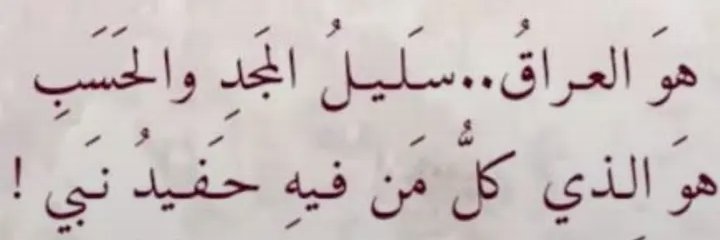 هوَ العراقُ..سَليلُ المَجدِ والحَسَبِ
هوَ الذي كلُّ مَن فيهِ حَفيدُ نَبي !